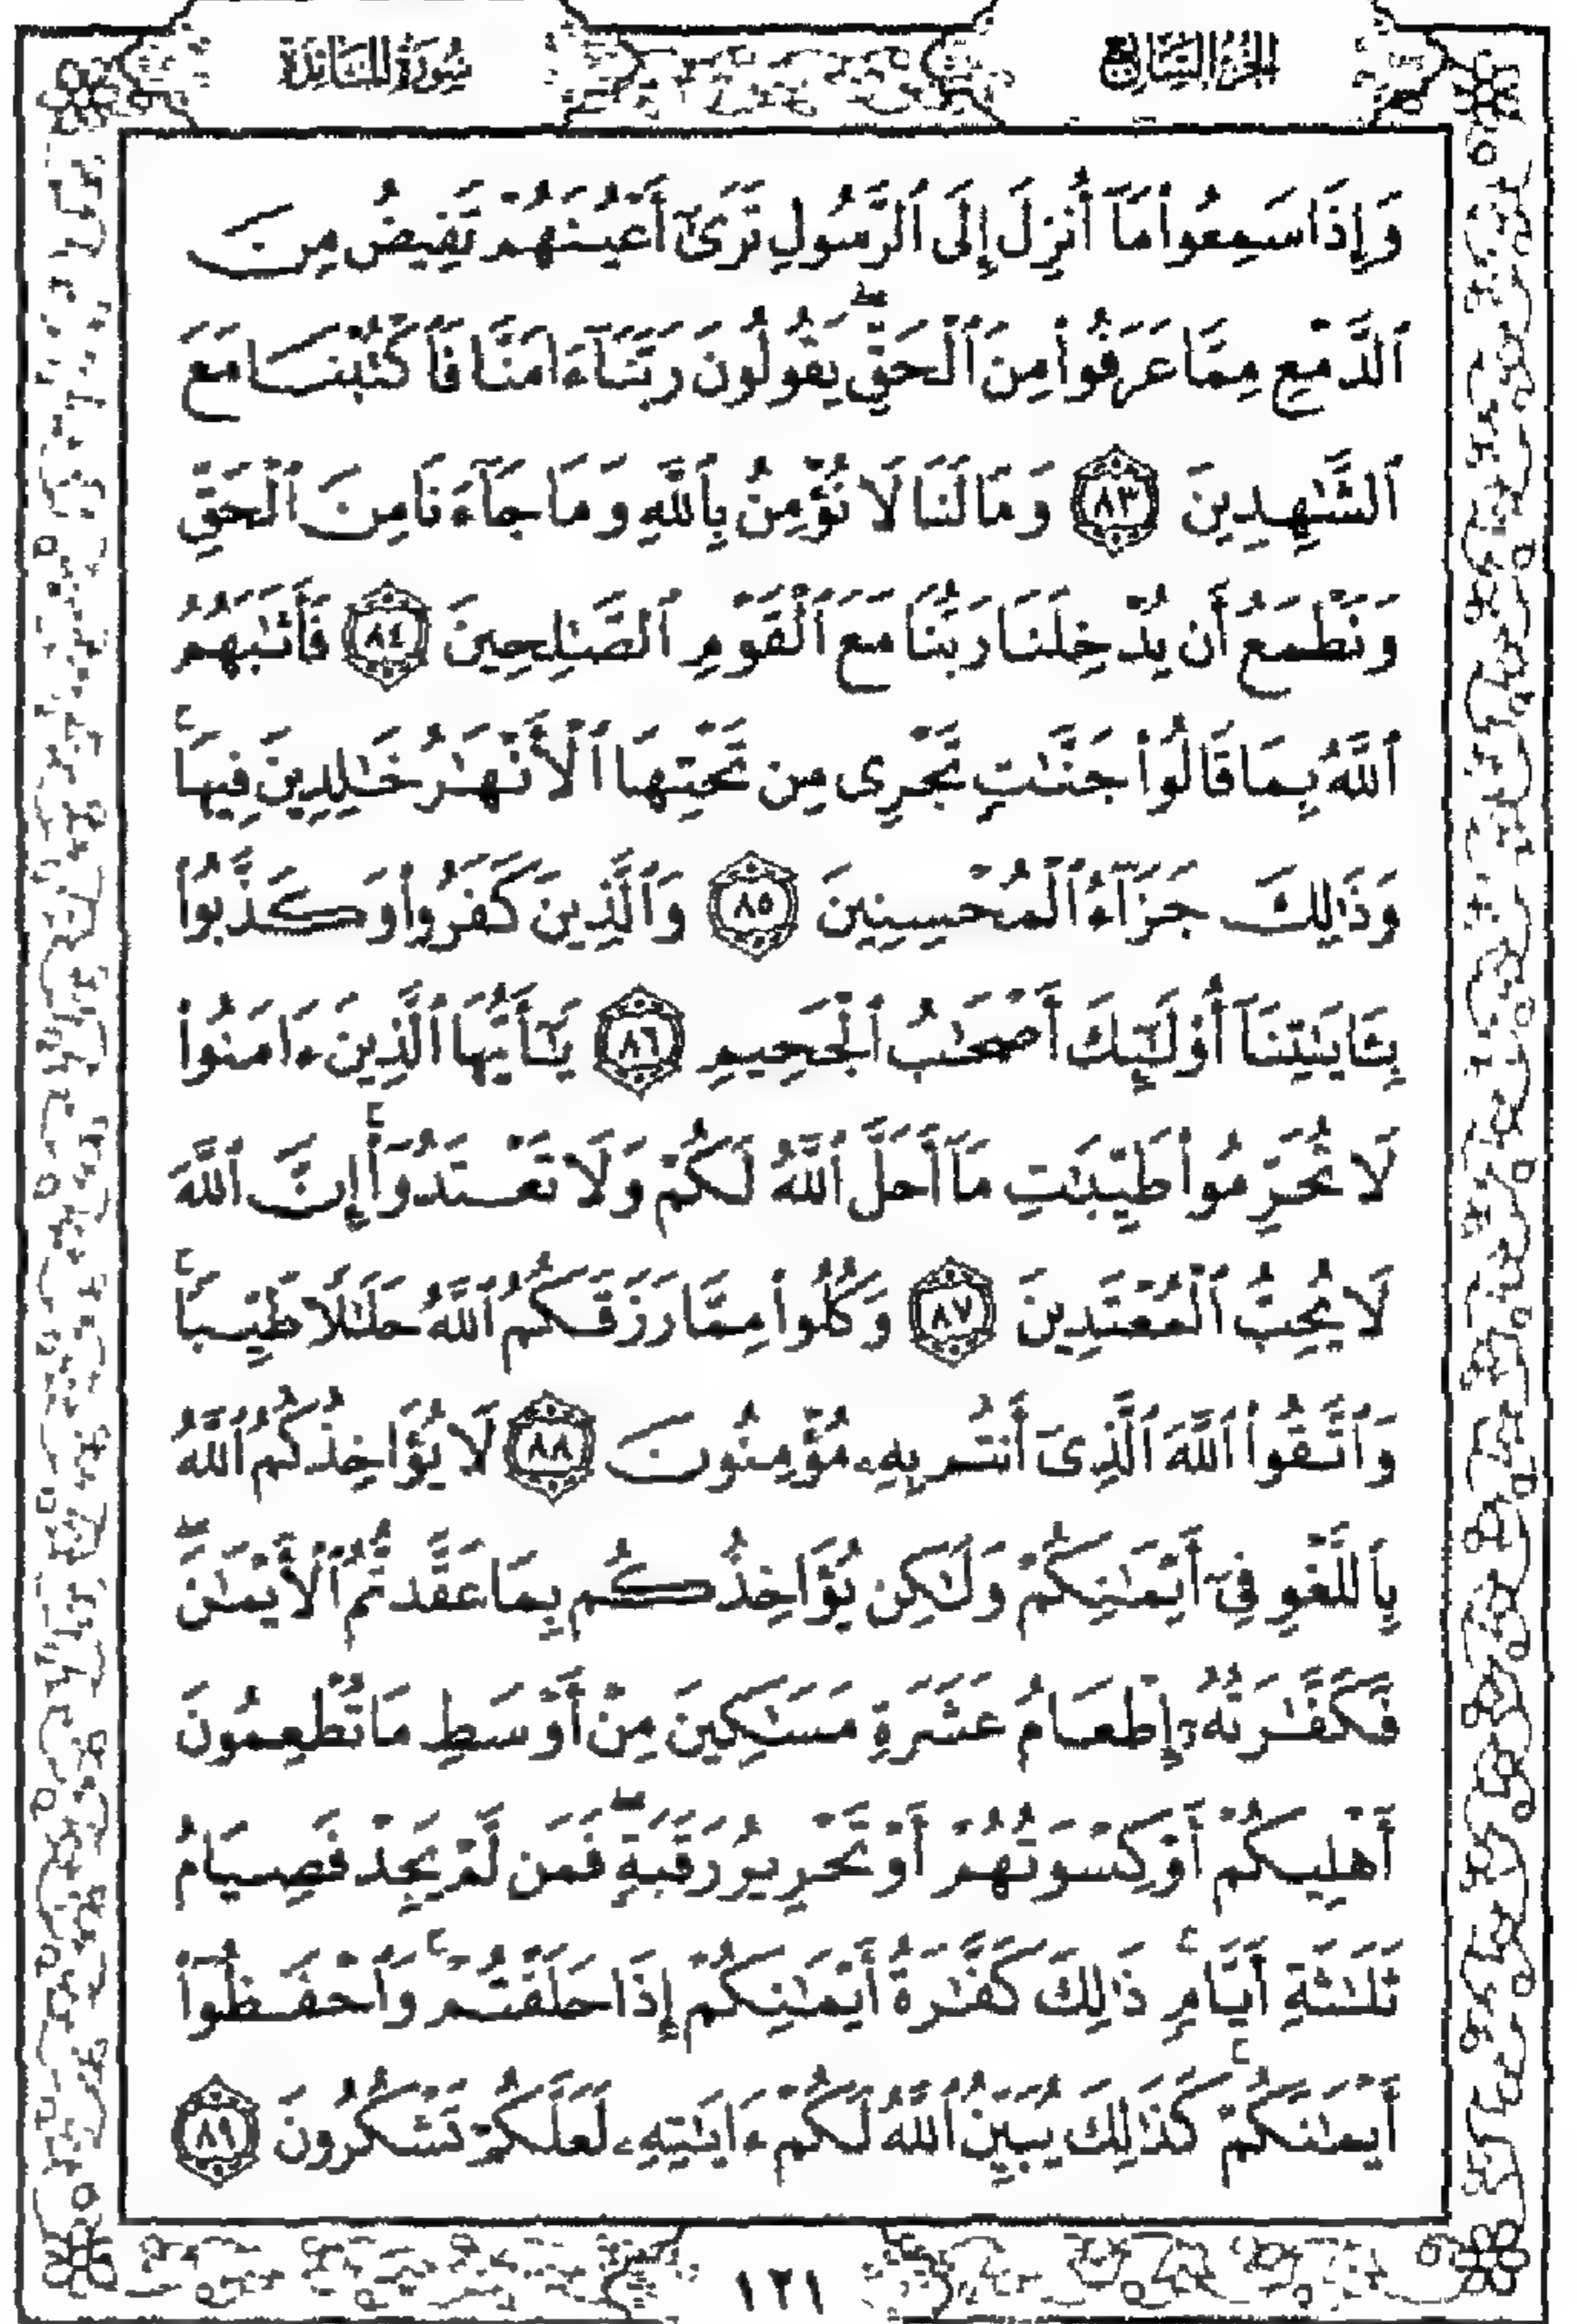 الجزء السابع سورة المائدة
وَإِذَا سَمِعُوا۟ مَآ أُنزِلَ إِلَى ٱلرَّسُولِ تَرَىٰٓ أَعْيُنَهُمْ تَفِيضُ مِنَ
ٱلدَّمْعِ مِمَّا عَرَفُوا۟ مِنَ ٱلْحَقِّ ۖ يَقُولُونَ رَبَّنَآ ءَامَنَّا فَٱكْتُبْنَا مَعَ
ٱلشَّٰهِدِينَ ٨٣ وَمَا لَنَا لَا نُؤْمِنُ بِٱللَّهِ وَمَا جَآءَنَا مِنَ ٱلْحَقِّ
وَنَطْمَعُ أَن يُدْخِلَنَا رَبُّنَا مَعَ ٱلْقَوْمِ ٱلصَّٰلِحِينَ ٨٤ فَأَثَٰبَهُمُ
ٱللَّهُ بِمَا قَالُوا۟ جَنَّٰتٍ تَجْرِى مِن تَحْتِهَا ٱلْأَنْهَٰرُ خَٰلِدِينَ فِيهَا ۚ
وَذَٰلِكَ جَزَآءُ ٱلْمُحْسِنِينَ ٨٥ وَٱلَّذِينَ كَفَرُوا۟ وَكَذَّبُوا۟
بِـَٔايَٰتِنَآ أُو۟لَٰٓئِكَ أَصْحَٰبُ ٱلْجَحِيمِ ٨٦ يَٰٓأَيُّهَا ٱلَّذِينَ ءَامَنُوا۟
لَا تُحَرِّمُوا۟ طَيِّبَٰتِ مَآ أَحَلَّ ٱللَّهُ لَكُمْ وَلَا تَعْتَدُوٓا۟ ۚ إِنَّ ٱللَّهَ
لَا يُحِبُّ ٱلْمُعْتَدِينَ ٨٧ وَكُلُوا۟ مِمَّا رَزَقَكُمُ ٱللَّهُ حَلَٰلًا طَيِّبًا ۚ
وَٱتَّقُوا۟ ٱللَّهَ ٱلَّذِىٓ أَنتُم بِهِۦ مُؤْمِنُونَ ٨٨ لَا يُؤَاخِذُكُمُ ٱللَّهُ
بِٱللَّغْوِ فِىٓ أَيْمَٰنِكُمْ وَلَٰكِن يُؤَاخِذُكُم بِمَا عَقَّدتُّمُ ٱلْأَيْمَٰنَ ۖ
فَكَفَّٰرَتُهُۥٓ إِطْعَامُ عَشَرَةِ مَسَٰكِينَ مِنْ أَوْسَطِ مَا تُطْعِمُونَ
أَهْلِيكُمْ أَوْ كِسْوَتُهُمْ أَوْ تَحْرِيرُ رَقَبَةٍ ۖ فَمَن لَّمْ يَجِدْ فَصِيَامُ
ثَلَٰثَةِ أَيَّامٍ ۚ ذَٰلِكَ كَفَّٰرَةُ أَيْمَٰنِكُمْ إِذَا حَلَفْتُمْ ۚ وَٱحْفَظُوٓا۟
أَيْمَٰنَكُمْ ۚ كَذَٰلِكَ يُبَيِّنُ ٱللَّهُ لَكُمْ ءَايَٰتِهِۦ لَعَلَّكُمْ تَشْكُرُونَ ٨٩
١٢١